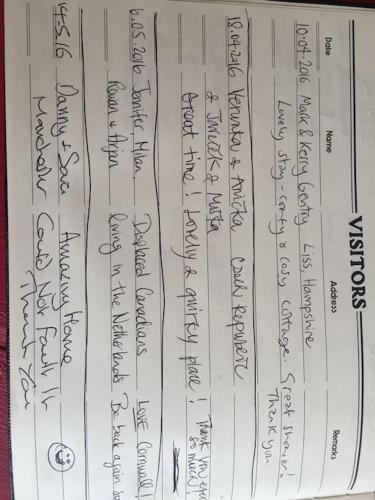 VISITORS
Date Name Address Remarks
10.04.2016 Mark & Kerry Gentry Liss, Hampshire
Lovely stay - comfy & cosy cottage. Great shower!
Thank you.
18.04.2016 Veronika & Anička Czech Republic
& Jeníček & Miška
Great time! Lovely & quirky place! Thank you
so much!
6.05.2016 Jenifer, Milan Displaced Canadians Love Cornwall!
Rowan & Arjan living in the Netherlands Be back again
14-5.16 Danny & Sara Amazing Home
Manchester Could Not Fault It
Thank You